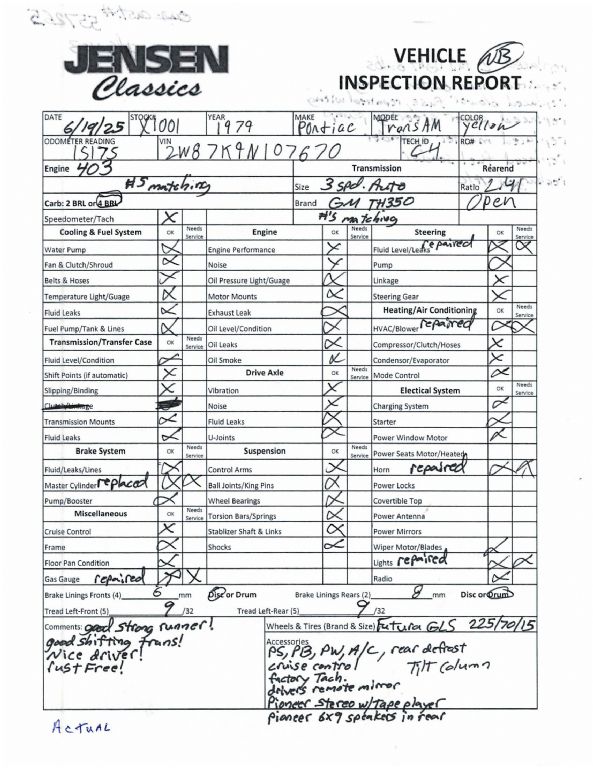 JENSEN
Classics
VEHICLE NB
INSPECTION REPORT
DATE 6/19/25 STOCK# X1001 YEAR 1979 MAKE Pontiac MODEL TransAM COLOR Yellow
ODOMETER READING 15175 VIN 2W87K9N107670 TECH ID RO#
Engine 403 Transmission Rearend
#'s matching Size 3 spd. Auto Ratio 2.41
Carb: 2 BRL or 4 BRL Brand GM TH350 Open
Speedometer/Tach X #'s matching
Cooling & Fuel System OK Needs Service Engine OK Needs Service Steering OK Needs Service
Water Pump X Engine Performance X Fluid Level/Leaks repaired X X
Fan & Clutch/Shroud X Noise X Pump X
Belts & Hoses X Oil Pressure Light/Guage X Linkage X
Temperature Light/Guage X Motor Mounts X Steering Gear X
Fluid Leaks X Exhaust Leak X Heating/Air Conditioning OK Needs Service
Fuel Pump/Tank & Lines X Oil Level/Condition X HVAC/Blower repaired X X
Transmission/Transfer Case OK Needs Service Oil Leaks X Compressor/Clutch/Hoses X
Fluid Level/Condition X Oil Smoke X Condensor/Evaporator X
Shift Points (if automatic) X Drive Axle OK Needs Service Mode Control X
Slipping/Binding X Vibration X Electical System OK Needs Service
Clutch/Linkage Noise X Charging System X
Transmission Mounts X Fluid Leaks X Starter X
Fluid Leaks X U-Joints X Power Window Motor X
Brake System OK Needs Service Suspension OK Needs Service Power Seats Motor/Heated
Fluid/Leaks/Lines X Control Arms X Horn repaired X X
Master Cylinder replaced X X Ball Joints/King Pins X Power Locks
Pump/Booster X Wheel Bearings X Covertible Top
Miscellaneous OK Needs Service Torsion Bars/Springs X Power Antenna
Cruise Control X Stablizer Shaft & Links X Power Mirrors
Frame X Shocks X Wiper Motor/Blades X
Floor Pan Condition X Lights repaired X X
Gas Gauge repaired X X Radio X
Brake Linings Fronts (4) 6 mm Disc or Drum Brake Linings Rears (2) 8 mm Disc or Drum
Tread Left-Front (5) 9 /32 Tread Left-Rear (5) 9 /32
Comments: good strong runner! Wheels & Tires (Brand & Size) Futura GLS 225/70/15
good shifting trans!
Nice driver!
rust Free!
Accessories
PS, PB, PW, A/C, rear defrost
cruise control Tilt Column
factory Tach.
drivers remote mirror
Pioneer Stereo w/Tape player
Pioneer 6x9 speakers in rear
ACTUAL